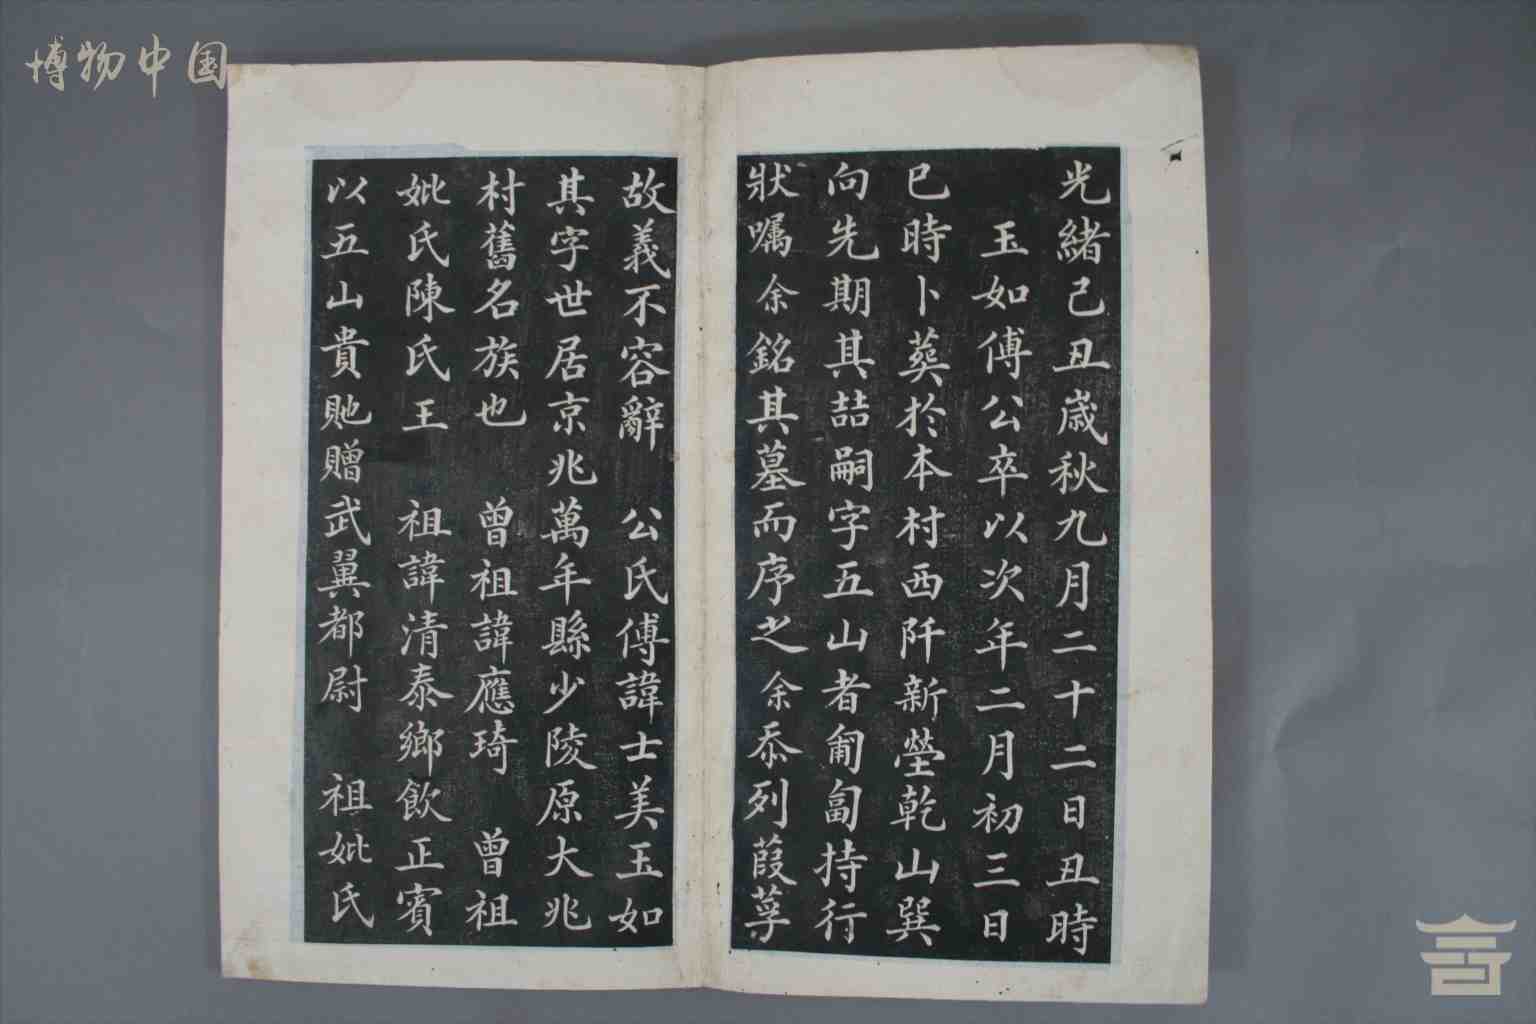 博物中国
光緒己丑歳秋九月二十二日丑時
玉如傅公卒以次年二月初三日
巳時卜葬於本村西阡新塋乾山巽
向先期其喆嗣字五山者匍匐持行
狀嘱余銘其墓而序之余忝列葭莩
故義不容辭 公氏傅諱士美玉如
其字世居京兆萬年縣少陵原大兆
村舊名族也 曾祖諱應琦 曾祖
妣氏陳氏王 祖諱清泰鄉飲正賓
以五山貴貤贈武翼都尉 祖妣氏